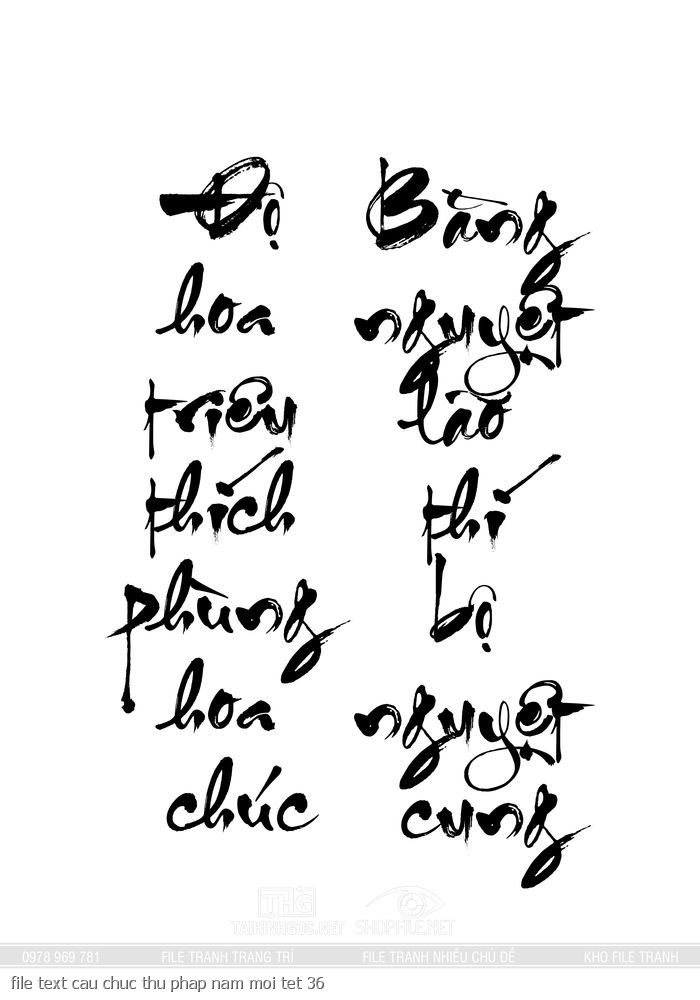 Độ
hoa
triêu
thích
phùng
hoa
chúc
Bằng
nguyệt
lão
thí
bộ
nguyệt
cung
THG
TAIHINHGOC.NET SHOPFILE.NET
0978 969 781 FILE TRANH TRANG TRÍ FILE TRANH NHIỀU CHỦ ĐỀ KHO FILE TRANH
file text cau chuc thu phap nam moi tet 36